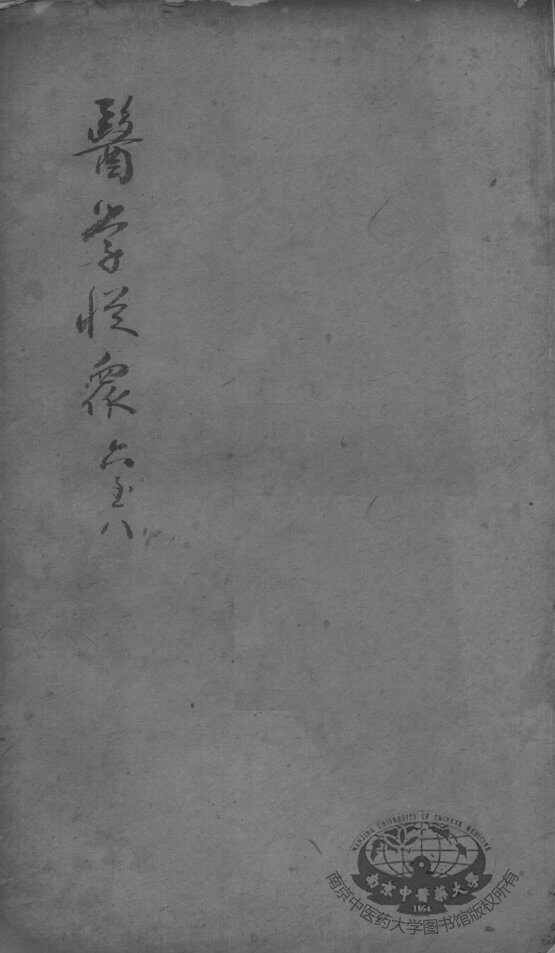 醫学從衆六至八
NANJING UNIVERSITY OF CHINESE MEDICINE
南京中醫藥大學
1954
南京中医药大学图书馆版权所有